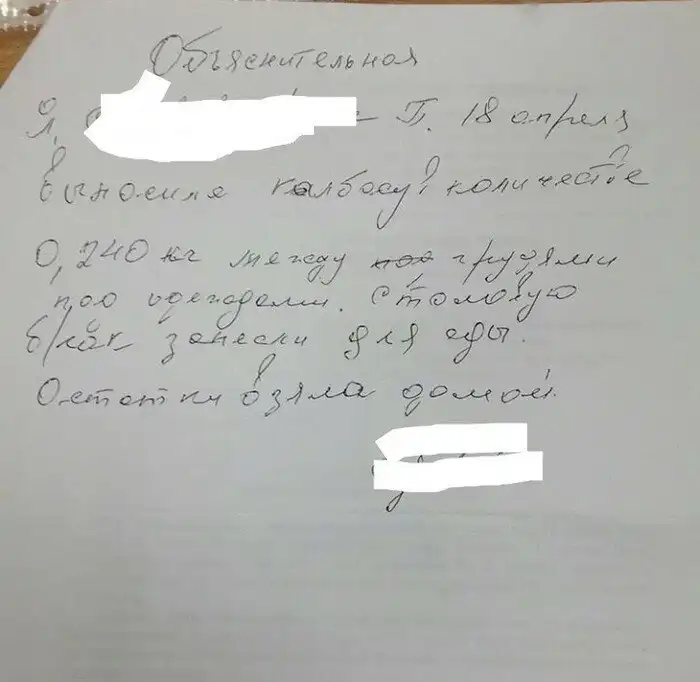 Объяснительная
Я, П. 18 апреля
выносила колбасу в количестве
0,240 кг между грудями
под одеждами. столовую
б/как занесли для еды.
Остатки взяла домой.